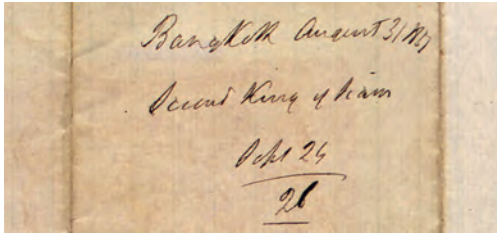 Bangkok August 31
Second King of Siam
24
26